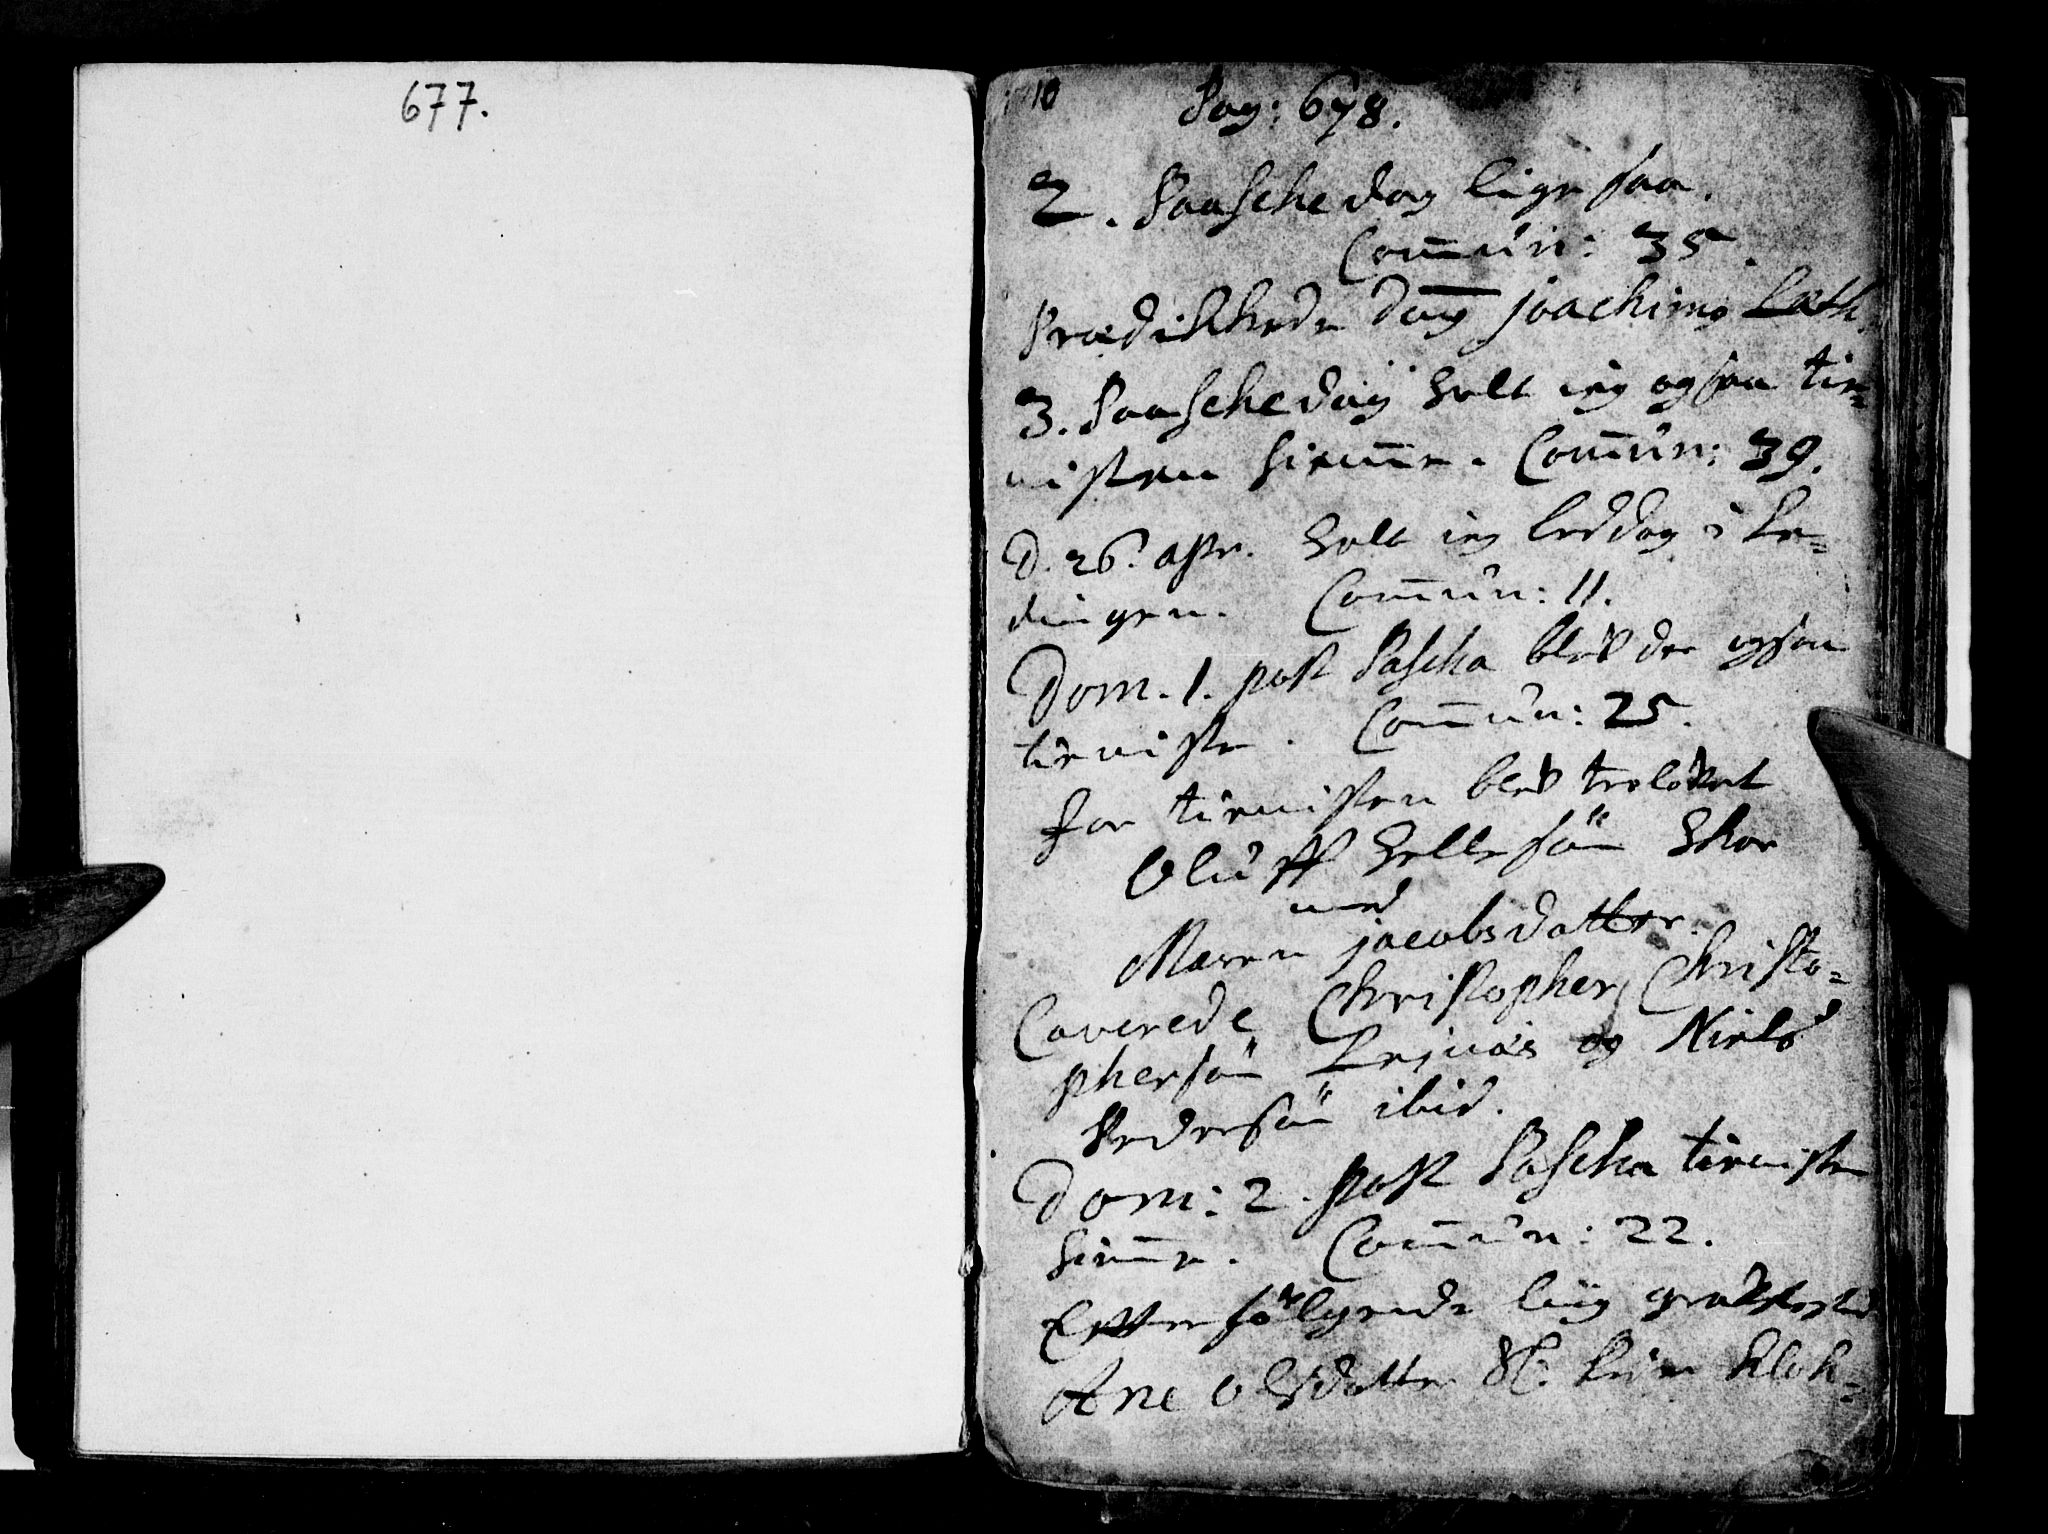 677.
10
Pag: 678.
2. Paaschedag lige saa.
Com̄un: 35.
Prædikkede Dn̄s Joachimus Cath.
3. Paaschedag holt ieg ogsaa tie-
nisten hiem̄e. Com̄un: 39.
D. 26. Apr. holt ieg beddag i Le-
dingen. Com̄un: 11.
Dom. 1. post Pascha blef der ogsaa
tieniste. Com̄un: 25.
for tienisten blef trolofvet
Oluff Hellesøn
med
Maren Jacobsdatter.
Caverede Christopher Christo-
phersøn og Niels
Pedersøn ibid.
Dom: 2. post Pascha tienisten
hiem̄e. Com̄un: 22.
Efterfølgende liig
Ane Olsdatter